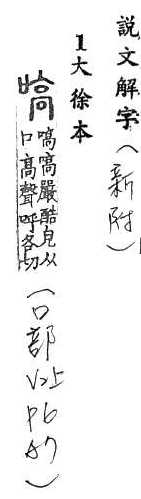 說文解字（新附）
1大徐本
嗃
嗃嗃嚴酷皃从
口高聲呼各切
（口部V2上P6A7）